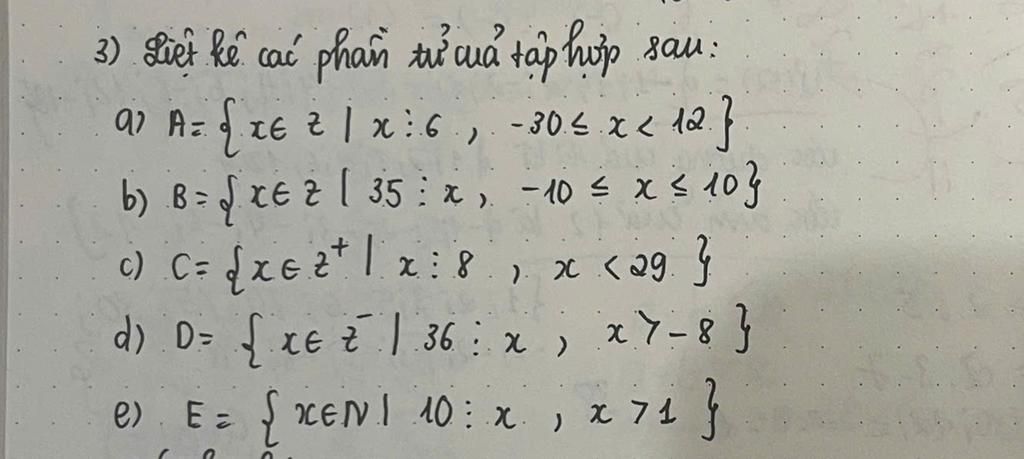 3) Liệt kê các phần tử của tập hợp sau:
a) A = { x ∈ Z | x ⋮ 6 , -30 ≤ x < 12 }
b) B = { x ∈ Z | 35 ⋮ x , -10 ≤ x ≤ 10 }
c) C = { x ∈ Z⁺ | x ⋮ 8 , x < 29 }
d) D = { x ∈ Z⁻ | 36 ⋮ x , x > -8 }
e) E = { x ∈ N | 10 ⋮ x , x > 1 }